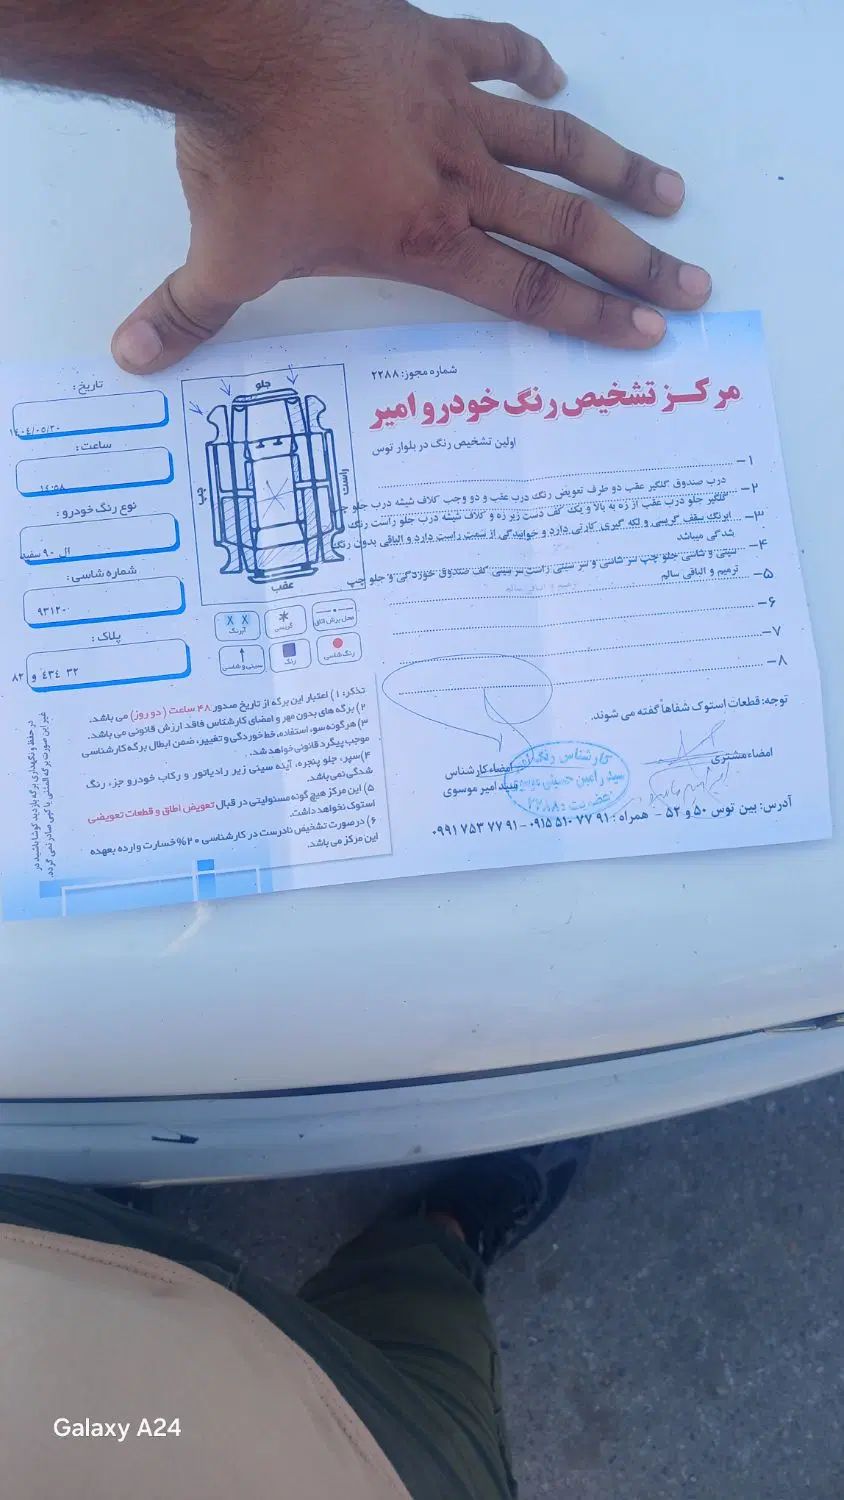 شماره مجوز: ۲۲۸۸
مرکز تشخیص رنگ خودرو امیر
اولین تشخیص رنگ در بلوار توس
۱-
درب صندوق گلگیر عقب دو طرف تعویض رنگ درب عقب و دو وجب کلاف شیشه درب جلو
۲-
گلگیر جلو درب عقب از زه به بالا و یک کف دست زیر زه و کلاف شیشه درب جلو راست رنگ
۳-
ابرنگ سقف گریسی و لکه گیری کارتی دارد و خوابیدگی از سمت راست دارد و الباقی بدون رنگ
شدگی میباشد
۴-
سینی و شاسی جلو چپ سر شاسی و سر سینی راست سر سینی کف صندوق خوردگی و جلو چپ
۵-
ترمیم و الباقی سالم
۶-
۷-
۸-
توجه: قطعات استوک شفاهاً گفته می شوند.
امضاء مشتری
امضاء کارشناس
سید امیر موسوی
کارشناس رنگ
آدرس: بین توس ۵۰ و ۵۲ - همراه: ۰۹۱۵ ۵۱۰ ۷۷ ۹۱ - ۰۹۹۱ ۷۵۳ ۷۷ ۹۱
جلو
راست
چپ
عقب
محل برش اتاق
گریسی
آبرنگ
رنگ شاسی
رنگ
سینی و شاسی
تاریخ:
۱۴۰۴/۰۵/۳۰
ساعت:
۱۴:۵۸
نوع رنگ خودرو:
ال ۹۰ سفید
شماره شاسی:
۹۳۱۲۰
پلاک:
۸۲ و ۴۳۴ ۳۲
تذکر: ۱) اعتبار این برگه از تاریخ صدور ۴۸ ساعت (دو روز) می باشد.
۲) برگه های بدون مهر و امضای کارشناس فاقد ارزش قانونی می باشد.
۳) هرگونه سوء استفاده، خط خوردگی و تغییر، ضمن ابطال برگه کارشناسی
موجب پیگرد قانونی خواهد شد.
۴) سپر، جلو پنجره، آینه سینی زیر رادیاتور و رکاب خودرو جزء رنگ
شدگی نمی باشد.
۵) این مرکز هیچ گونه مسئولیتی در قبال تعویض اطاق و قطعات تعویضی
استوک نخواهد داشت.
۶) در صورت تشخیص نادرست در کارشناسی ۲۰% خسارت وارده بعهده
این مرکز می باشد.
در حفظ و نگهداری برگه بازدید کوشا باشید در
غیر این صورت برگه المثنی یا کپی صادر نمی گردد.
Galaxy A24